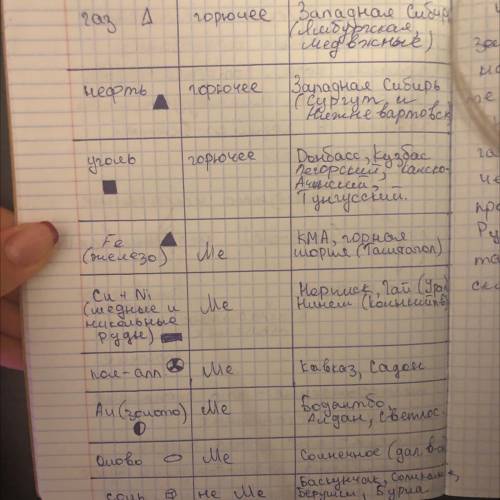 газ горючее Западная Сибирь
(Ямбургская,
Медвжные)
нефть горючее Западная Сибирь
(Сургут и
Нижневартовск
уголь горючее Донбасс, Кузбас
Печорский, Канско-
Ачинский,
Тунгусский.
Fe
(железо) Ме КМА, горная
шория (Таштагол)
Cu + Ni
(медные и
никольные
руды) Ме Норильск, Гай (Урал
пол-алл Ме Кавказ, Садон
Au (золото) Ме Бодайтбо,
Алдан, Светлос
Олово Ме Солнечное (дал. в-о
соль не Ме Баскунчак,
Бурла